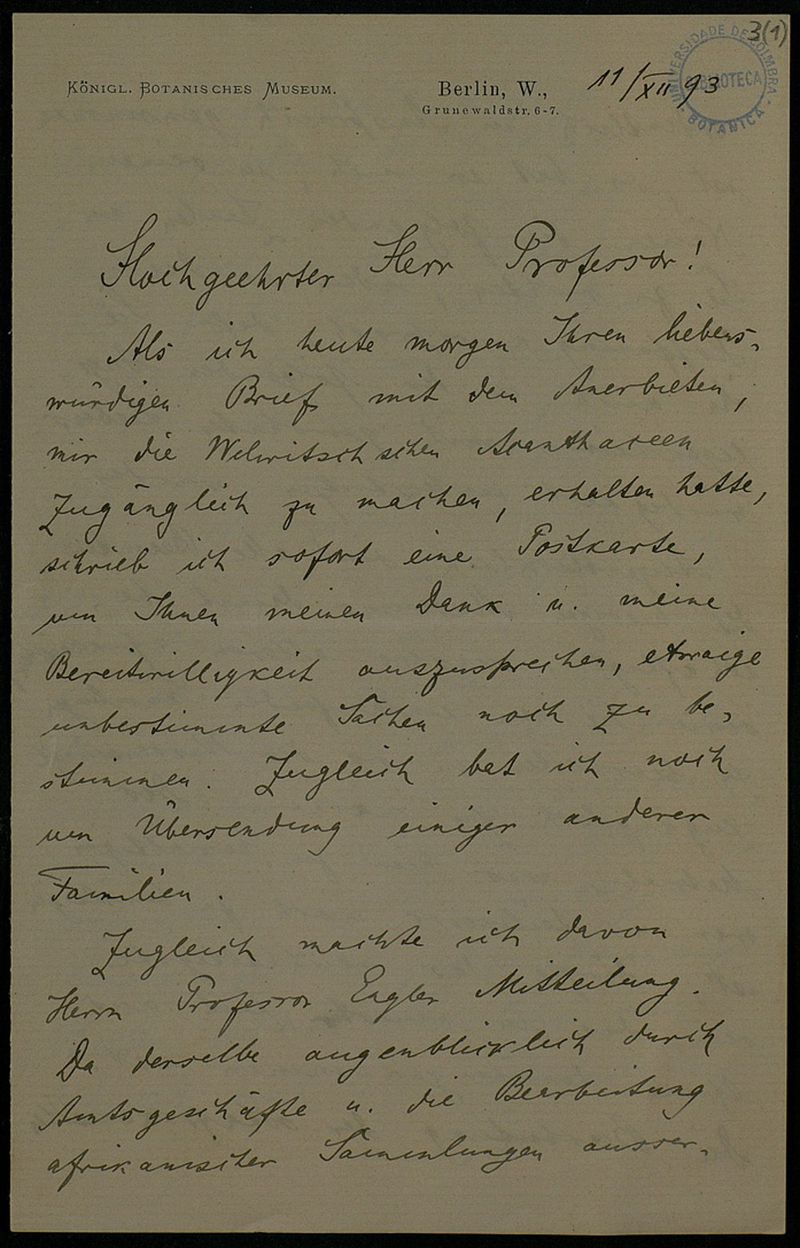 3(1)
UNIVERSIDADE DE COIMBRA
BIBLIOTECA
BOTANICA
KÖNIGL. BOTANISCHES MUSEUM.
Berlin, W., 11/XII 93
Grunewaldstr. 6-7.
Hochgeehrter Herr Professor!
Als ich heute morgen Ihren liebens-
würdigen Brief mit dem Anerbieten,
mir die Welwitsch schen Acanthaceen
zugänglich zu machen, erhalten hatte,
schrieb ich sofort eine Postkarte,
um Ihnen meinen Dank u. meine
Bereitwilligkeit auszusprechen, etwaige
unbestimmte Sachen noch zu be-
stimmen. Zugleich bat ich noch
um Übersendung einiger anderer
Familien.
Zugleich machte ich davon
Herrn Professor Engler Mitteilung.
Da derselbe augenblicklich durch
Amtsgeschäfte u. die Bearbeitung
afrikanischer Sammlungen ausser-